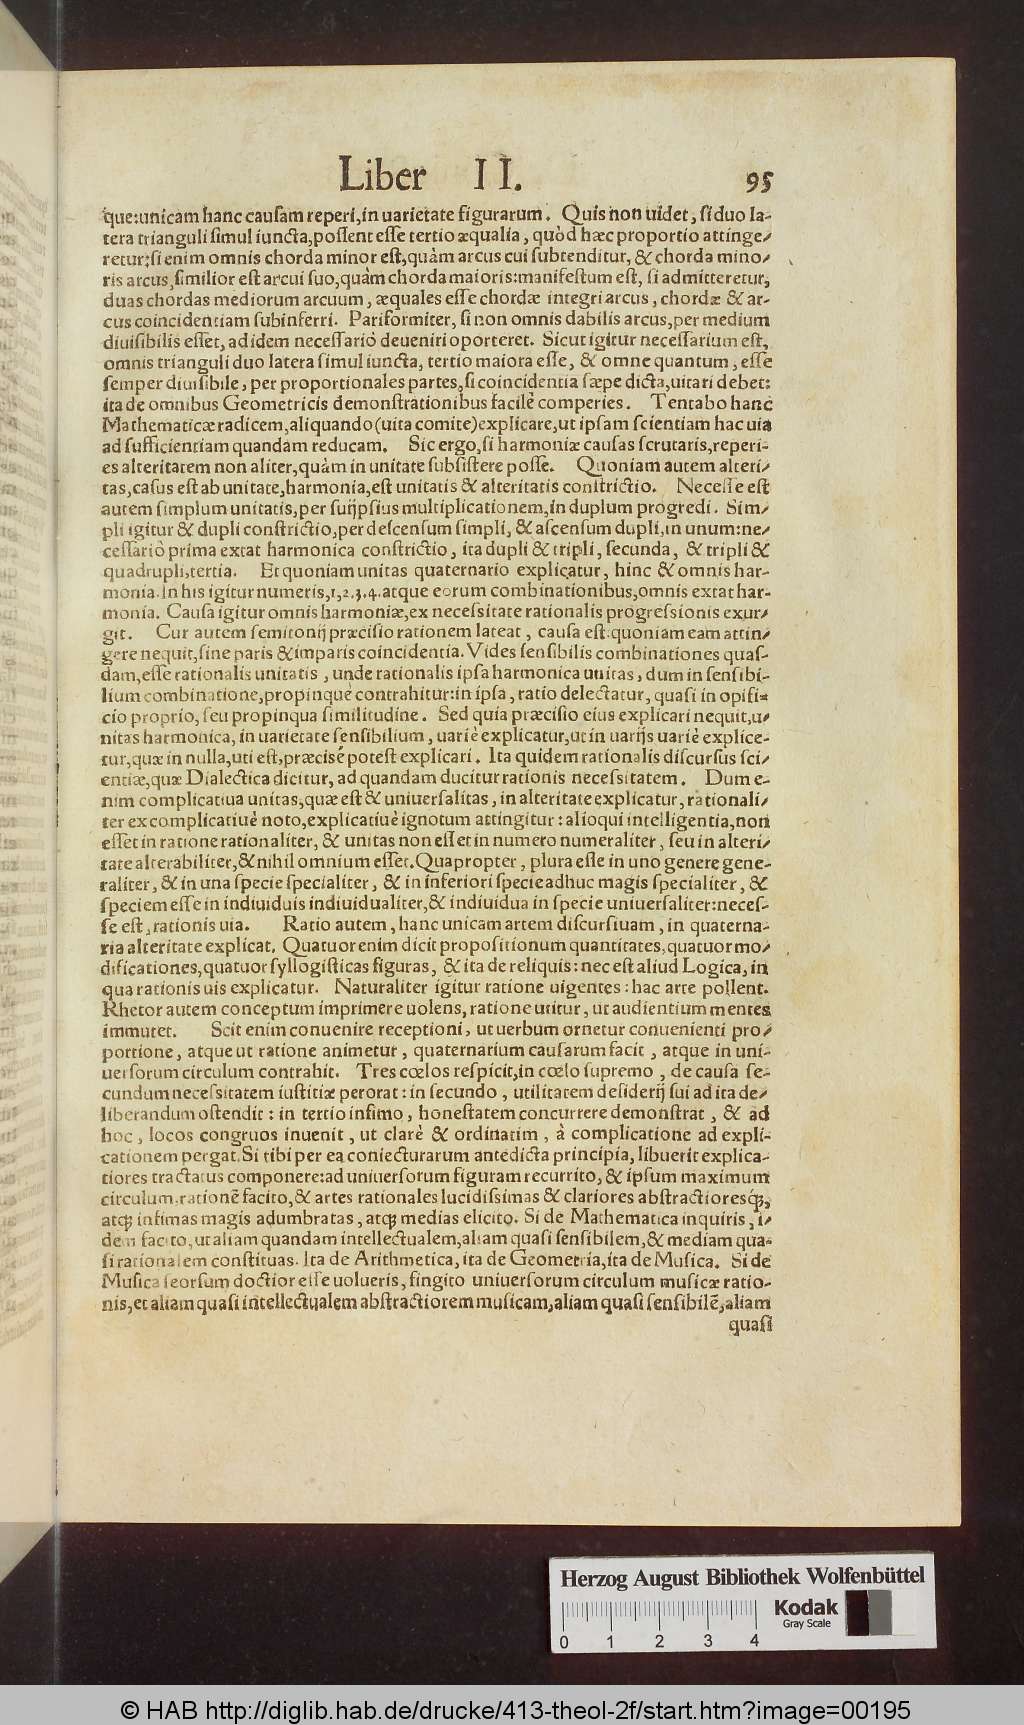 Liber II. 95
que: unicam hanc causam reperi, in uarietate figurarum. Quis non uidet, si duo la-
tera trianguli simul iuncta, possent esse tertio æqualia, quòd hæc proportio attinge-
retur: si enim omnis chorda minor est, quàm arcus cui subtenditur, & chorda mino-
ris arcus, similior est arcui suo, quàm chorda maioris: manifestum est, si admitteretur,
duas chordas mediorum arcuum, æquales esse chordæ integri arcus, chordæ & ar-
cus coincidentiam subinferri. Pariformiter, si non omnis dabilis arcus, per medium
diuisibilis esset, ad idem necessariò deueniri oporteret. Sicut igitur necessarium est,
omnis trianguli duo latera simul iuncta, tertio maiora esse, & omne quantum, esse
semper diuisibile, per proportionales partes, si coincidentia sæpe dicta, uitari debet:
ita de omnibus Geometricis demonstrationibus facilè comperies. Tentabo hanc
Mathematicæ radicem, aliquando (uita comite) explicare, ut ipsam scientiam hac uia
ad sufficientiam quandam reducam. Sic ergo, si harmoniæ causas scrutaris, reperi-
es alteritatem non aliter, quàm in unitate subsistere posse. Quoniam autem alteri-
tas, casus est ab unitate, harmonia, est unitatis & alteritatis constrictio. Necesse est
autem simplum unitatis, per suijpsius multiplicationem, in duplum progredi. Sim-
pli igitur & dupli constrictio, per descensum simpli, & ascensum dupli, in unum: ne-
cessariò prima extat harmonica constrictio, ita dupli & tripli, secunda, & tripli &
quadrupli, tertia. Et quoniam unitas quaternario explicatur, hinc & omnis har-
monia. In his igitur numeris, 1, 2. 3. 4. atque eorum combinationibus, omnis extat har-
monia. Causa igitur omnis harmoniæ, ex necessitate rationalis progressionis exur-
git. Cur autem semitonij præcisio rationem lateat, causa est: quoniam eam attin-
gere nequit, sine paris & imparis coincidentia. Vides sensibilis combinationes quas-
dam, esse rationalis unitatis, unde rationalis ipsa harmonica unitas, dum in sensibi-
lium combinatione, propinquè contrahitur: in ipsa, ratio delectatur, quasi in opifi-
cio proprio, seu propinqua similitudine. Sed quia præcisio eius explicari nequit, u-
nitas harmonica, in uarietate sensibilium, uariè explicatur, ut in uarijs uariè explice-
tur, quæ in nulla, uti est, præcisè potest explicari. Ita quidem rationalis discursus sci-
entiæ, quæ Dialectica dicitur, ad quandam ducitur rationis necessitatem. Dum e-
nim complicatiua unitas, quæ est & uniuersalitas, in alteritate explicatur, rationali-
ter ex complicatiuè noto, explicatiuè ignotum attingitur: alioqui intelligentia, non
esset in ratione rationaliter, & unitas non esset in numero numeraliter, seu in alteri-
tate alterabiliter, & nihil omnium esset. Quapropter, plura esse in uno genere gene-
raliter, & in una specie specialiter, & in inferiori specie adhuc magis specialiter, &
speciem esse in indiuiduis indiuidualiter, & indiuidua in specie uniuersaliter: neces-
se est, rationis uia. Ratio autem, hanc unicam artem discursiuam, in quaterna-
ria alteritate explicat. Quatuor enim dicit propositionum quantitates, quatuor mo-
dificationes, quatuor syllogisticas figuras, & ita de reliquis: nec est aliud Logica, in
qua rationis uis explicatur. Naturaliter igitur ratione uigentes: hac arte pollent.
Rhetor autem conceptum imprimere uolens, ratione utitur, ut audientium mentes
immutet. Scit enim conuenire receptioni, ut uerbum ornetur conuenienti pro-
portione, atque ut ratione animetur, quaternarium causarum facit, atque in uni-
uersorum circulum contrahit. Tres cœlos respicit, in cœlo supremo, de causa se-
cundum necessitatem iustitiæ perorat: in secundo, utilitatem desiderij sui ad ita de-
liberandum ostendit: in tertio infimo, honestatem concurrere demonstrat, & ad
hoc, locos congruos inuenit, ut clarè & ordinatim, à complicatione ad expli-
cationem pergat. Si tibi per ea coniecturarum antedicta principia, libuerit explica-
tiores tractatus componere: ad uniuersorum figuram recurrito, & ipsum maximum
circulum, rationẽ facito, & artes rationales lucidissimas & clariores abstractioresq́;,
atq; infimas magis adumbratas, atq; medias elicito. Si de Mathematica inquiris, i-
dem facito, ut aliam quandam intellectualem, aliam quasi sensibilem, & mediam qua-
si rationalem constituas. Ita de Arithmetica, ita de Geometria, ita de Musica. Si de
Musica seorsum doctior esse uolueris, fingito uniuersorum circulum musicæ ratio-
nis, et aliam quasi intellectualem abstractiorem musicam, aliam quasi sensibilẽ, aliam
quasi
Herzog August Bibliothek Wolfenbüttel
Kodak
Gray Scale
0 1 2 3 4
© HAB http://diglib.hab.de/drucke/413-theol-2f/start.htm?image=00195